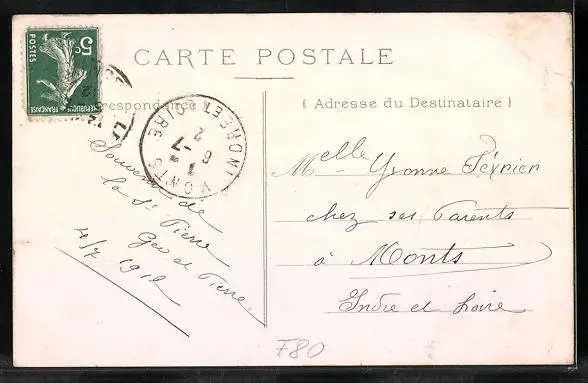 5c
POSTES
REPUBLIQUE FRANÇAISE
CARTE POSTALE
Correspondance
( Adresse du Destinataire )
MONTS
INDRE ET LOIRE
6 -7
12
Souvenir de
la St Pierre
Geo et Pierre
4/7 1912
Melle Yvonne Février
chez ses Parents
à Monts
Indre et Loire
F80